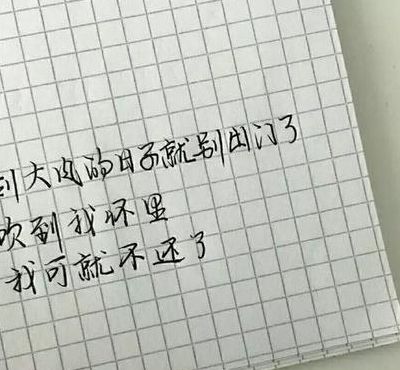 到大风的日子就别出门了
吹到我怀里
我可就不还了